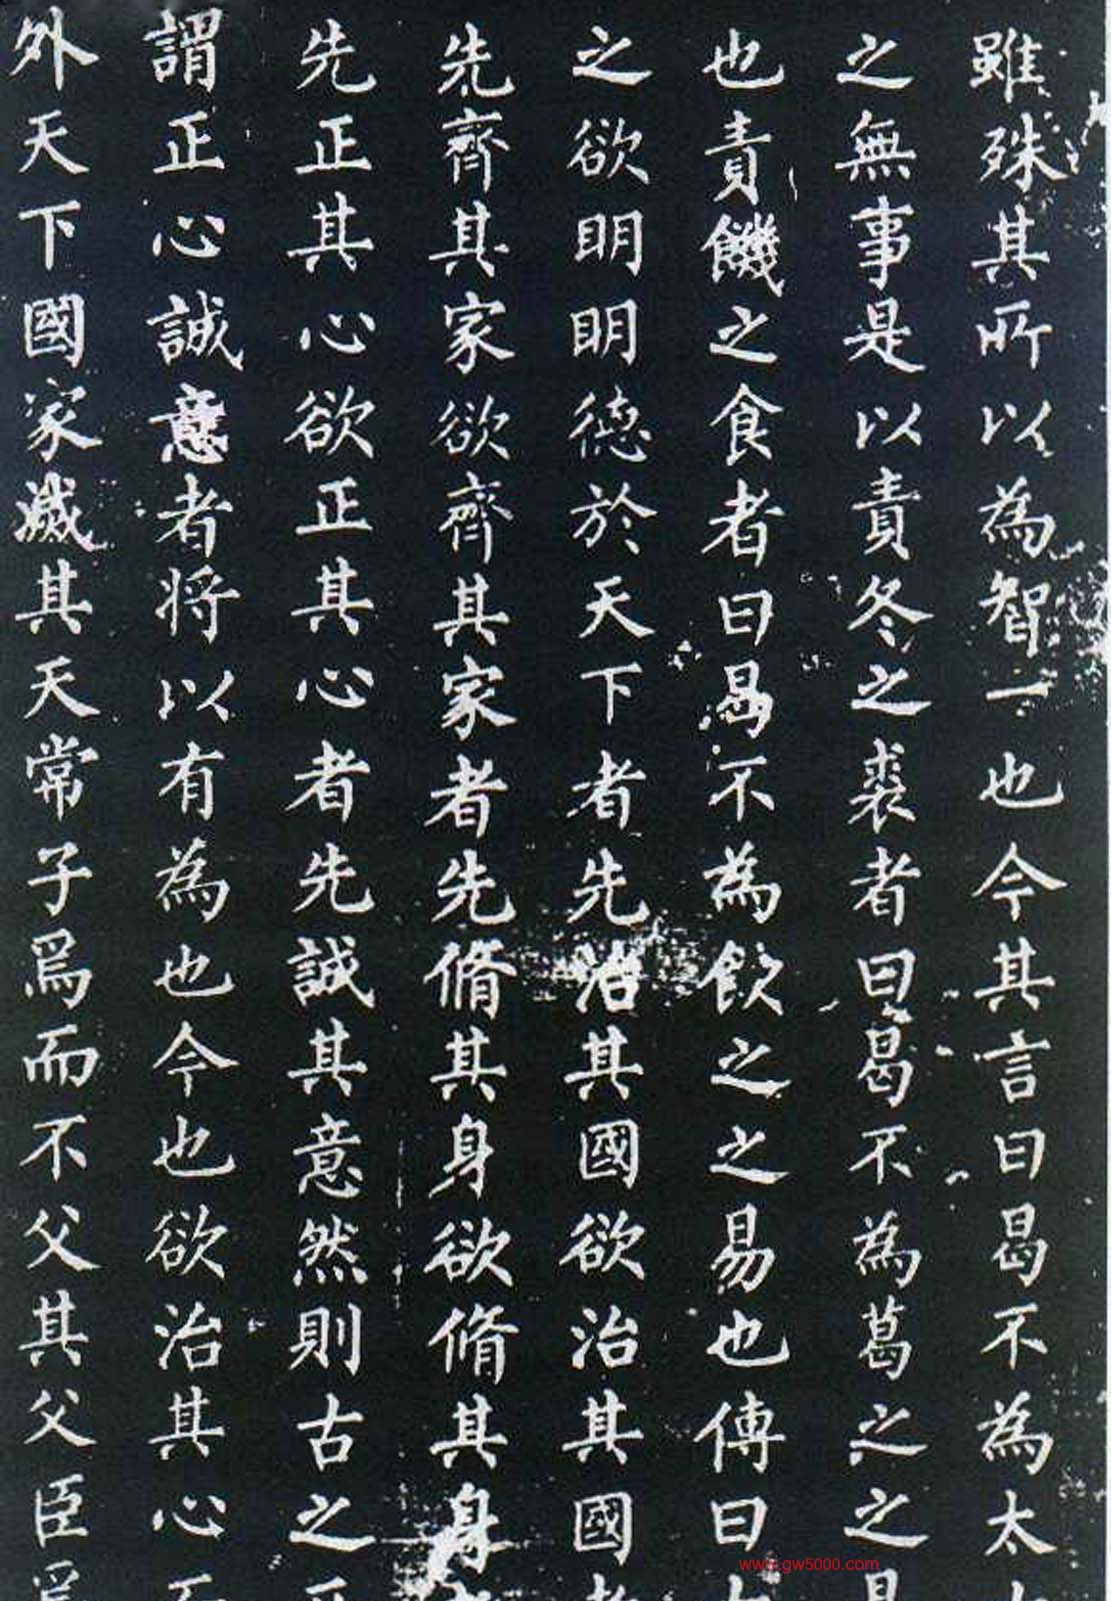 雖殊其所以為智一也今其言曰曷不為太
之無事是以責冬之裘者曰曷不為葛之之
也責饑之食者曰曷不為飲之之易也傳曰
之欲明明德於天下者先治其國欲治其國
先齊其家欲齊其家者先脩其身欲脩其身
先正其心欲正其心者先誠其意然則古之
謂正心誠意者將以有為也今也欲治其心
外天下國家滅其天常子焉而不父其父臣
www.gw5000.com